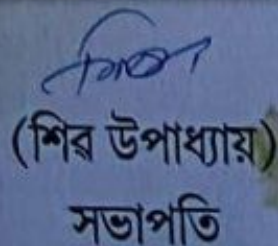 (শিৱ উপাধ্যায়)
সভাপতি